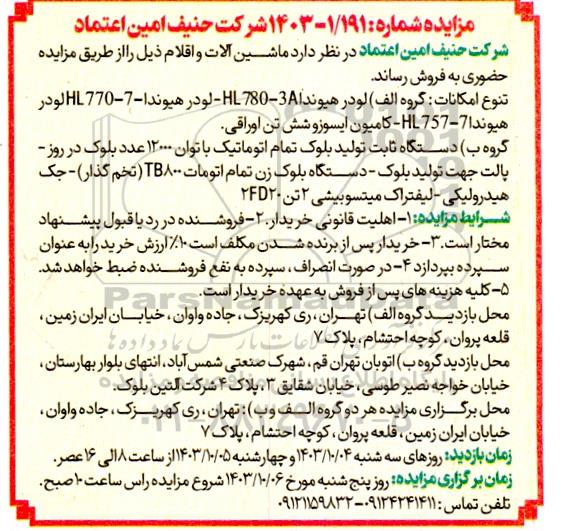 مزایده شماره: ۱/۱۹۱-۱۴۰۳ شرکت حنیف امین اعتماد
شرکت حنیف امین اعتماد در نظر دارد ماشین آلات و اقلام ذیل را از طریق مزایده
حضوری به فروش رساند.
تنوع امکانات: گروه الف) لودر هیوندا HL780-3A - لودر هیوندا HL770-7- لودر
هیوندا HL757-7- کامیون ایسوزو شش تن اوراقی.
گروه ب) دستگاه ثابت تولید بلوک تمام اتوماتیک با توان ۱۲۰۰۰ عدد بلوک در روز -
پالت جهت تولید بلوک - دستگاه بلوک زن تمام اتومات TB۸۰۰ (تخم گذار) - جک
هیدرولیکی - لیفتراک میتسوبیشی ۲ تن ۲FD۲۰
شرایط مزایده: ۱- اهلیت قانونی خریدار. ۲- فروشنده در رد یا قبول پیشنهاد
مختار است. ۳- خریدار پس از برنده شدن مکلف است ۱۰٪ ارزش خرید را به عنوان
سپرده بپردازد ۴- در صورت انصراف، سپرده به نفع فروشنده ضبط خواهد شد.
۵- کلیه هزینه های پس از فروش به عهده خریدار است.
محل بازدید گروه الف) تهران، ری کهریزک، جاده واوان، خیابان ایران زمین،
قلعه پروان، کوچه احتشام، پلاک ۷
محل بازدید گروه ب) اتوبان تهران قم، شهرک صنعتی شمس آباد، انتهای بلوار بهارستان،
خیابان خواجه نصیر طوسی، خیابان شقایق ۳، پلاک ۴ شرکت آلتین بلوک
محل برگزاری مزایده هر دو گروه الف و ب): تهران، ری کهریزک، جاده واوان،
خیابان ایران زمین، قلعه پروان، کوچه احتشام، پلاک ۷
زمان بازدید: روزهای سه شنبه ۱۴۰۳/۱۰/۰۴ و چهارشنبه ۱۴۰۳/۱۰/۰۵ از ساعت ۸ الی ۱۶ عصر.
زمان برگزاری مزایده: روز پنج شنبه مورخ ۱۴۰۳/۱۰/۰۶ شروع مزایده راس ساعت ۱۰ صبح.
تلفن تماس: ۰۹۱۲۴۲۴۱۴۱۱-۰۹۱۲۱۱۵۹۸۳۲